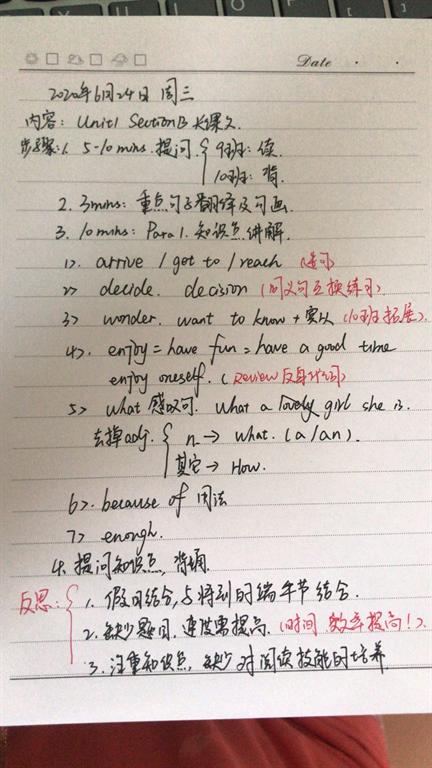 Date
2020年6月24日 周三
内容: Unit1 SectionB 长课文.
步骤: 1. 5-10 mins. 提问 { 9班: 读.
10班: 背.
2. 3mins: 重点句子翻译及勾画.
3. 10 mins: Para 1. 知识点讲解.
1>. arrive / get to / reach (造句)
2> decide. decision (同义句互换练习)
3> wonder. want to know + 宾从 (10班拓展)
4>. enjoy = have fun = have a good time
enjoy oneself. (Review 反身代词)
5> what 感叹句. What a lovely girl she is.
去掉adj. { n. → what. (a/an).
其它 → How.
6>. because of 用法
7> enough.
4. 提问知识点, 背诵.
反思: { 1. 假日结合, 与将到的端午节结合.
2. 缺少题目. 速度需提高. (时间 效率提高!).
3. 注重知识点, 缺少对阅读技能的培养